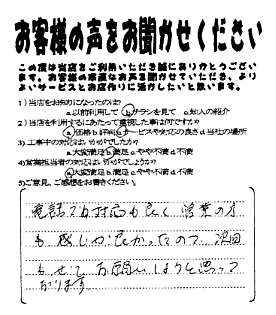 お客様の声をお聞かせください
この度は当店をご利用いただき誠にありがとうござい
ます。お客様の率直なお声を聞かせていただき、より
よいサービスとお店作りに活かしたいと思います。
1)当店をお知りになったのは?
a.以前利用して b.チラシを見て c.知人の紹介
2)当店を利用するにあたって重視した事は何ですか?
a.価格 b.評判 c.サービスや対応の良さ d.当社の場所
3)工事中の対応はいかがでしたか?
a.大変満足 b.満足 c.やや不満 d.不満
4)営業担当者の対応はいかがでしょうか?
a.大変満足 b.満足 c.やや不満 d.不満
5)ご意見、ご感想をお書きください。
電話での対応も良く 営業の方
も感じが良かったので 次回
もぜひお願いしようと思って
おります